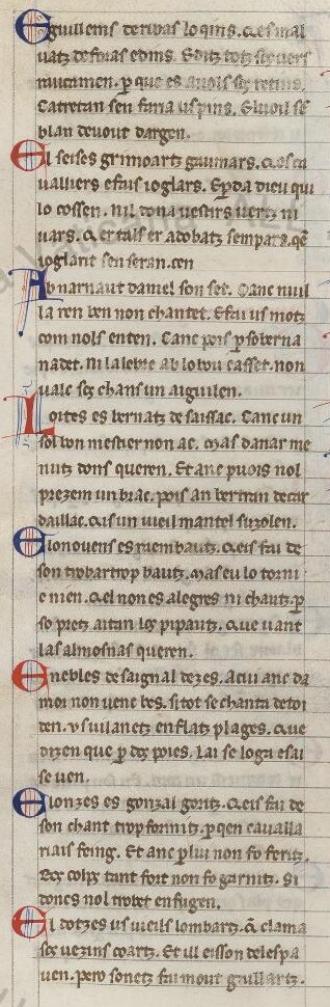 Eguillems deribas loqins. Q̃ es mal
uatz defoias edins. E ditz totz sos uers
raucamen. ꝑ que es auols sos retins.
Catretan sen faria us pins. El huoil se
blan deuout dargen.
El seises grimoartz gaumars. Q̃ es ca
ualliers efais ioglars. E ꝑda dieu qui
lo cossen. nil dona uestirs uertz ni
uars. Q̃ er tals er adobatz sempars. qe
ioglarit sen seran .cen
Ab narnaut daniel son set. Canc nuil
la ren ben non chantet. E fai us motz
com nols enten. Canc pois ꝑ soberna
nadet. ni la lebre ab lo bou casset. non
ualc sos chans un aiguilen.
Loites es bernatz de saissac. Canc un
sol bon mestier non ac. mas danar me
nutz dons queren. Et anc puois nol
prezem un brac. pois an bertran decar
daillac. qis un uieil mantel suzolen.
Elonouens es raembautz. Q̃ eis fai de
son trobar trop bautz. mas eu lo torni
e nien. Q̃ el non es alegres ni chautz. ꝑ
so pretz aitan los pipautz. Que uant
las almosnas queren.
E nebles de saignal dezes. Acui anc da
mor non uenc bes. si tot se chanta detoi
den. us uilanetz enflatz plages. Que
dizen que ꝑ dos poies. Lai se loga esai
se uen.
Elonzes es gonzal goritz. Q̃ eis fai de
son chant trop formitz. ꝑ qen caualla
riais feing. Et anc ꝑ lui non fo feritz.
Bos colps tant fort non fo garnitz. si
doncs nol trobet en fugen.
El dotzes us uieils lombartz. q̃ clama
sos uezins coartz. Et ill eisson delespa
uen. pero sonetz fai mout guillartz.